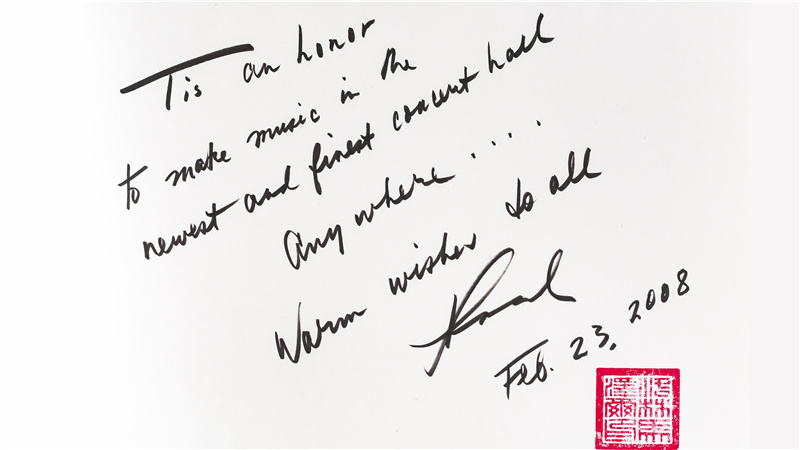 Tis an honor
to make music in the
newest and finest concert hall
anywhere....
Warm wishes to all
Feb. 23, 2008